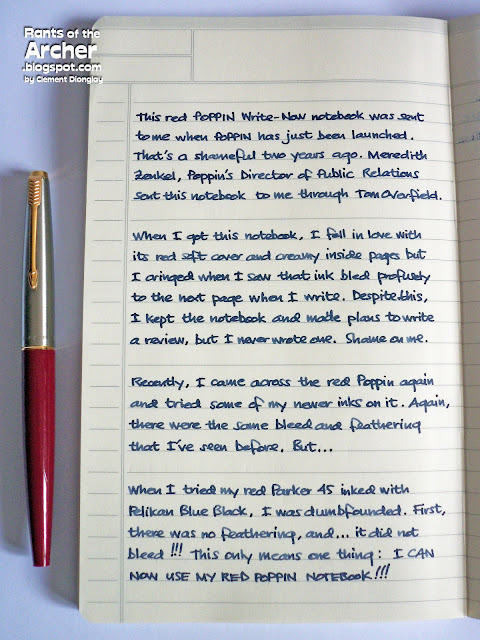 Rants of the
Archer
.blogspot.com
by Clement Dionglay
This red POPPIN Write-Now notebook was sent
to me when POPPIN has just been launched.
That's a shameful two years ago. Meredith
Zenkel, Poppin's Director of Public Relations
sent this notebook to me through Tom Overfield.
When I got this notebook, I fell in love with
its red soft cover and creamy inside pages but
I cringed when I saw that ink bled profusely
to the next page when I write. Despite this,
I kept the notebook and made plans to write
a review, but I never wrote one. Shame on me.
Recently, I came across the red Poppin again
and tried some of my newer inks on it. Again,
there were the same bleed and feathering
that I've seen before. But...
When I tried my red Parker 45 inked with
Pelikan Blue Black, I was dumbfounded. First,
there was no feathering, and... it did not
bleed!!! This only means one thing: I CAN
NOW USE MY RED POPPIN NOTEBOOK!!!